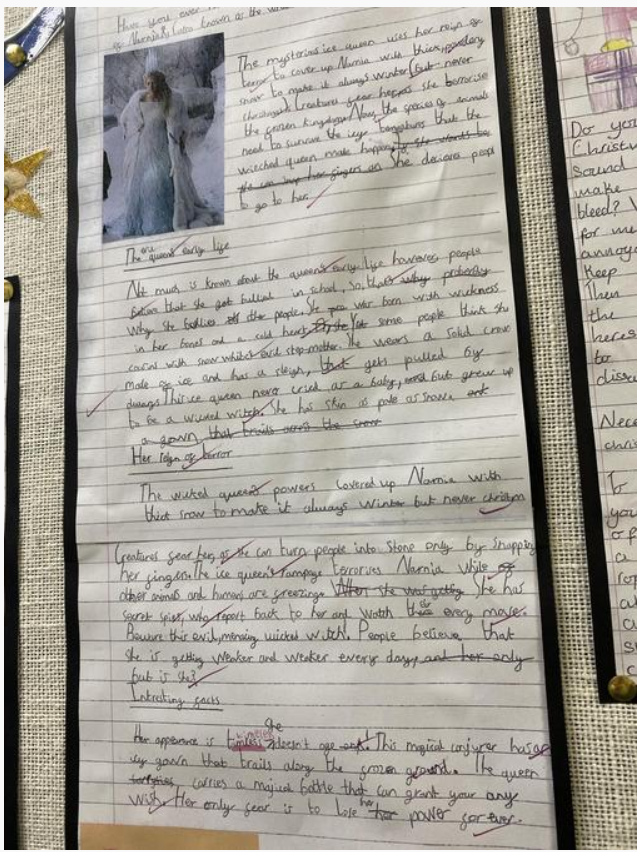 Have you ever
of Narnia & (also known as the
The mysterious ice queen uses her reign of
terror to cover up Narnia with thick, powdery
snow to make it always winter (but never
christmas). Creatures fear her as she terrorise
the frozen kingdom. Now, the species of animals
need to survive the icey temptures that the
wicked queen make happen.
She desires peopl
to go to her.
The ice queen's early life
Not much is known about the queen's early life however, people
believe that she got bullied in school, so, that's why probably
Why she bullies other people. She was born with wickness
in her bones and a cold heart. Yet some people think she
came with snow white's evil step-mother. She wears a solid crown
made of ice and has a sleigh, that gets pulled by
dwarfs. This ice queen never cried as a baby, but grew up
to be a wicked witch. She has skin as pale as snow.
a gown that trails across the
Her reign of terror
The wicked queen's powers covered up Narnia with
thick snow to make it always winter but never christmas
Creatures fear her, as she can turn people into stone only by snapping
her fingers. The ice queen's rampage terrorises Narnia while
other animals and humans are freezing. She has
secret spies, who report back to her and watch every move.
Beware this evil, menacing wicked witch. People believe that
she is getting weaker and weaker every day, and her only
but is she?
Intresting facts
Her appearance is timeless She doesn't age. This magical conjurer has an
icy gown that trails along the frozen ground. The queen
carries a magical bottle that can grant your any
wish. Her only fear is to lose her power for ever.
Do you
Christm
Sound
make
bleed? W
for me
annoy
Keep
Then
the
heres
to
disse
Nece
chris
you